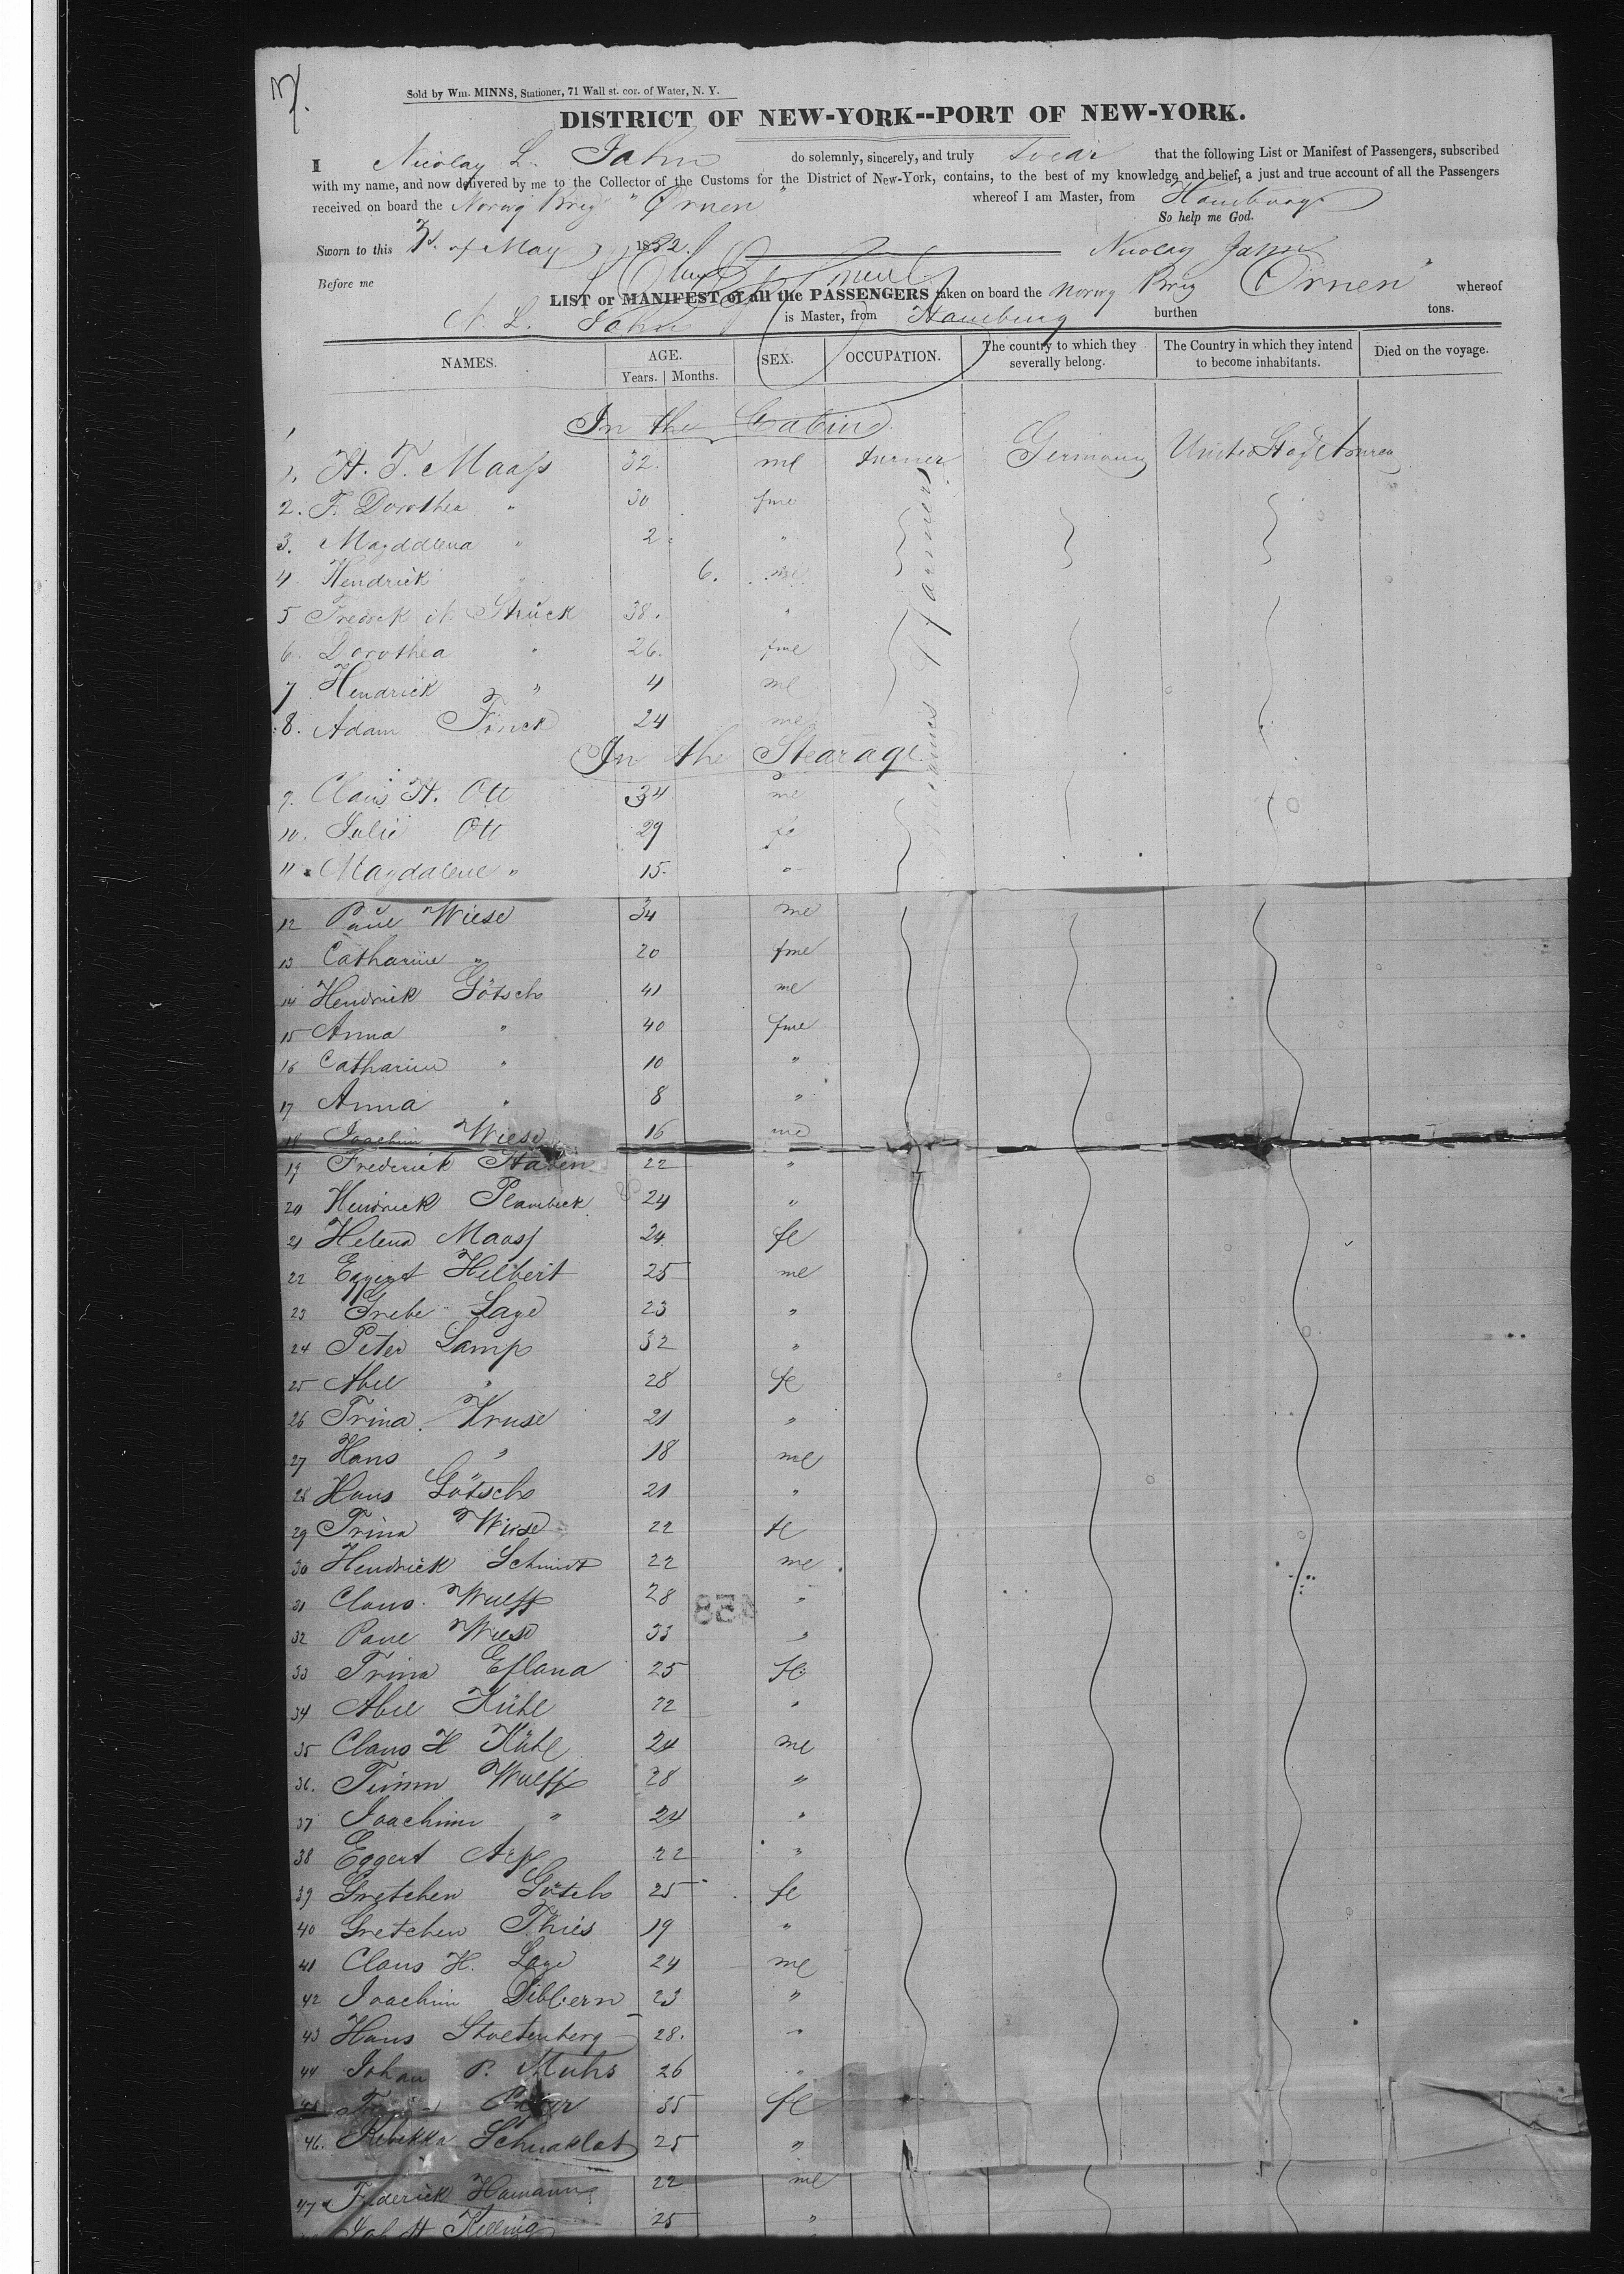 Sold by Wm. MINNS, Stationer, 71 Wall st. cor. of Water, N. Y.
DISTRICT OF NEW-YORK--PORT OF NEW-YORK.
I Nicolay L. Jahn do solemnly, sincerely, and truly swear that the following List or Manifest of Passengers, subscribed
with my name, and now delivered by me to the Collector of the Customs for the District of New-York, contains, to the best of my knowledge and belief, a just and true account of all the Passengers
received on board the Norwg Brig "Ørnen" whereof I am Master, from Hamburg
So help me God.
Sworn to this 3d. of May 1852. Nicolay Jahn
Before me
LIST or MANIFEST of all the PASSENGERS taken on board the Norwg Brig Ørnen" whereof
N. L. Jahn is Master, from Hamburg burthen tons.
NAMES. AGE. SEX. OCCUPATION. The country to which they severally belong. The Country in which they intend to become inhabitants. Died on the voyage.
Years. Months.
In the Cabin
1. H. T. Maass 32. me turner Germany United
2. F. Dorothea " 30 fme
3. Magddlena " 2 "
4 Hendrick " 6. me
5 Fredrck N. Struck 38. "
6. Dorothea " 26. fme
7 Hendrick " 4 me
8. Adam Finck 24 me
farmers
In the Stearage
9. Claus H. Ott 34 me
10. Julie Ott 29 fe
11 Magdalene " 15. "
12 Paul Wiese 34 me
13 Catharine " 20 fme
14 Hendrick Götsch 41 me
15 Anna " 40 fme
16 Catharine " 10 "
17 Anna " 8 "
18 Joachim Wiese 16 me
19 Frederick Staben 22 "
20 Hendrick Plambeck 24 "
21 Helena Maass 24. fe
22 Eggert Helbert 25 me
23 Grebe Lage 23 "
24 Peter Lamp 32 "
25 Abel " 28 fe
26 Trina Kruse 21 "
27 Hans " 18 me
28 Hans Götsch 21 "
29 Trina Wiese 22 fe
30 Hendrick Schmidt 22 me
31 Claus Wulff 28 "
32 Paul Wiese 33 "
33 Trina 25 fe
34 Abel Kühl 22 "
35 Claus H Kühl 24 me
36. Timm Wulff 28 "
37 Joachim " 24 "
38 Eggert Arp 22 "
39 Gretchen Götsch 25 fe
40 Gretchen Thies 19 "
41 Claus H. Lage 24 me
42 Joachim Dibbern 23 "
43 Hans Stoltenberg 28. "
44 Johan P. Muhs 26 "
45 35 fe
46. Rebekka 25 "
47 Frederick Hamann 22 me
Joh H Kelling 25 "